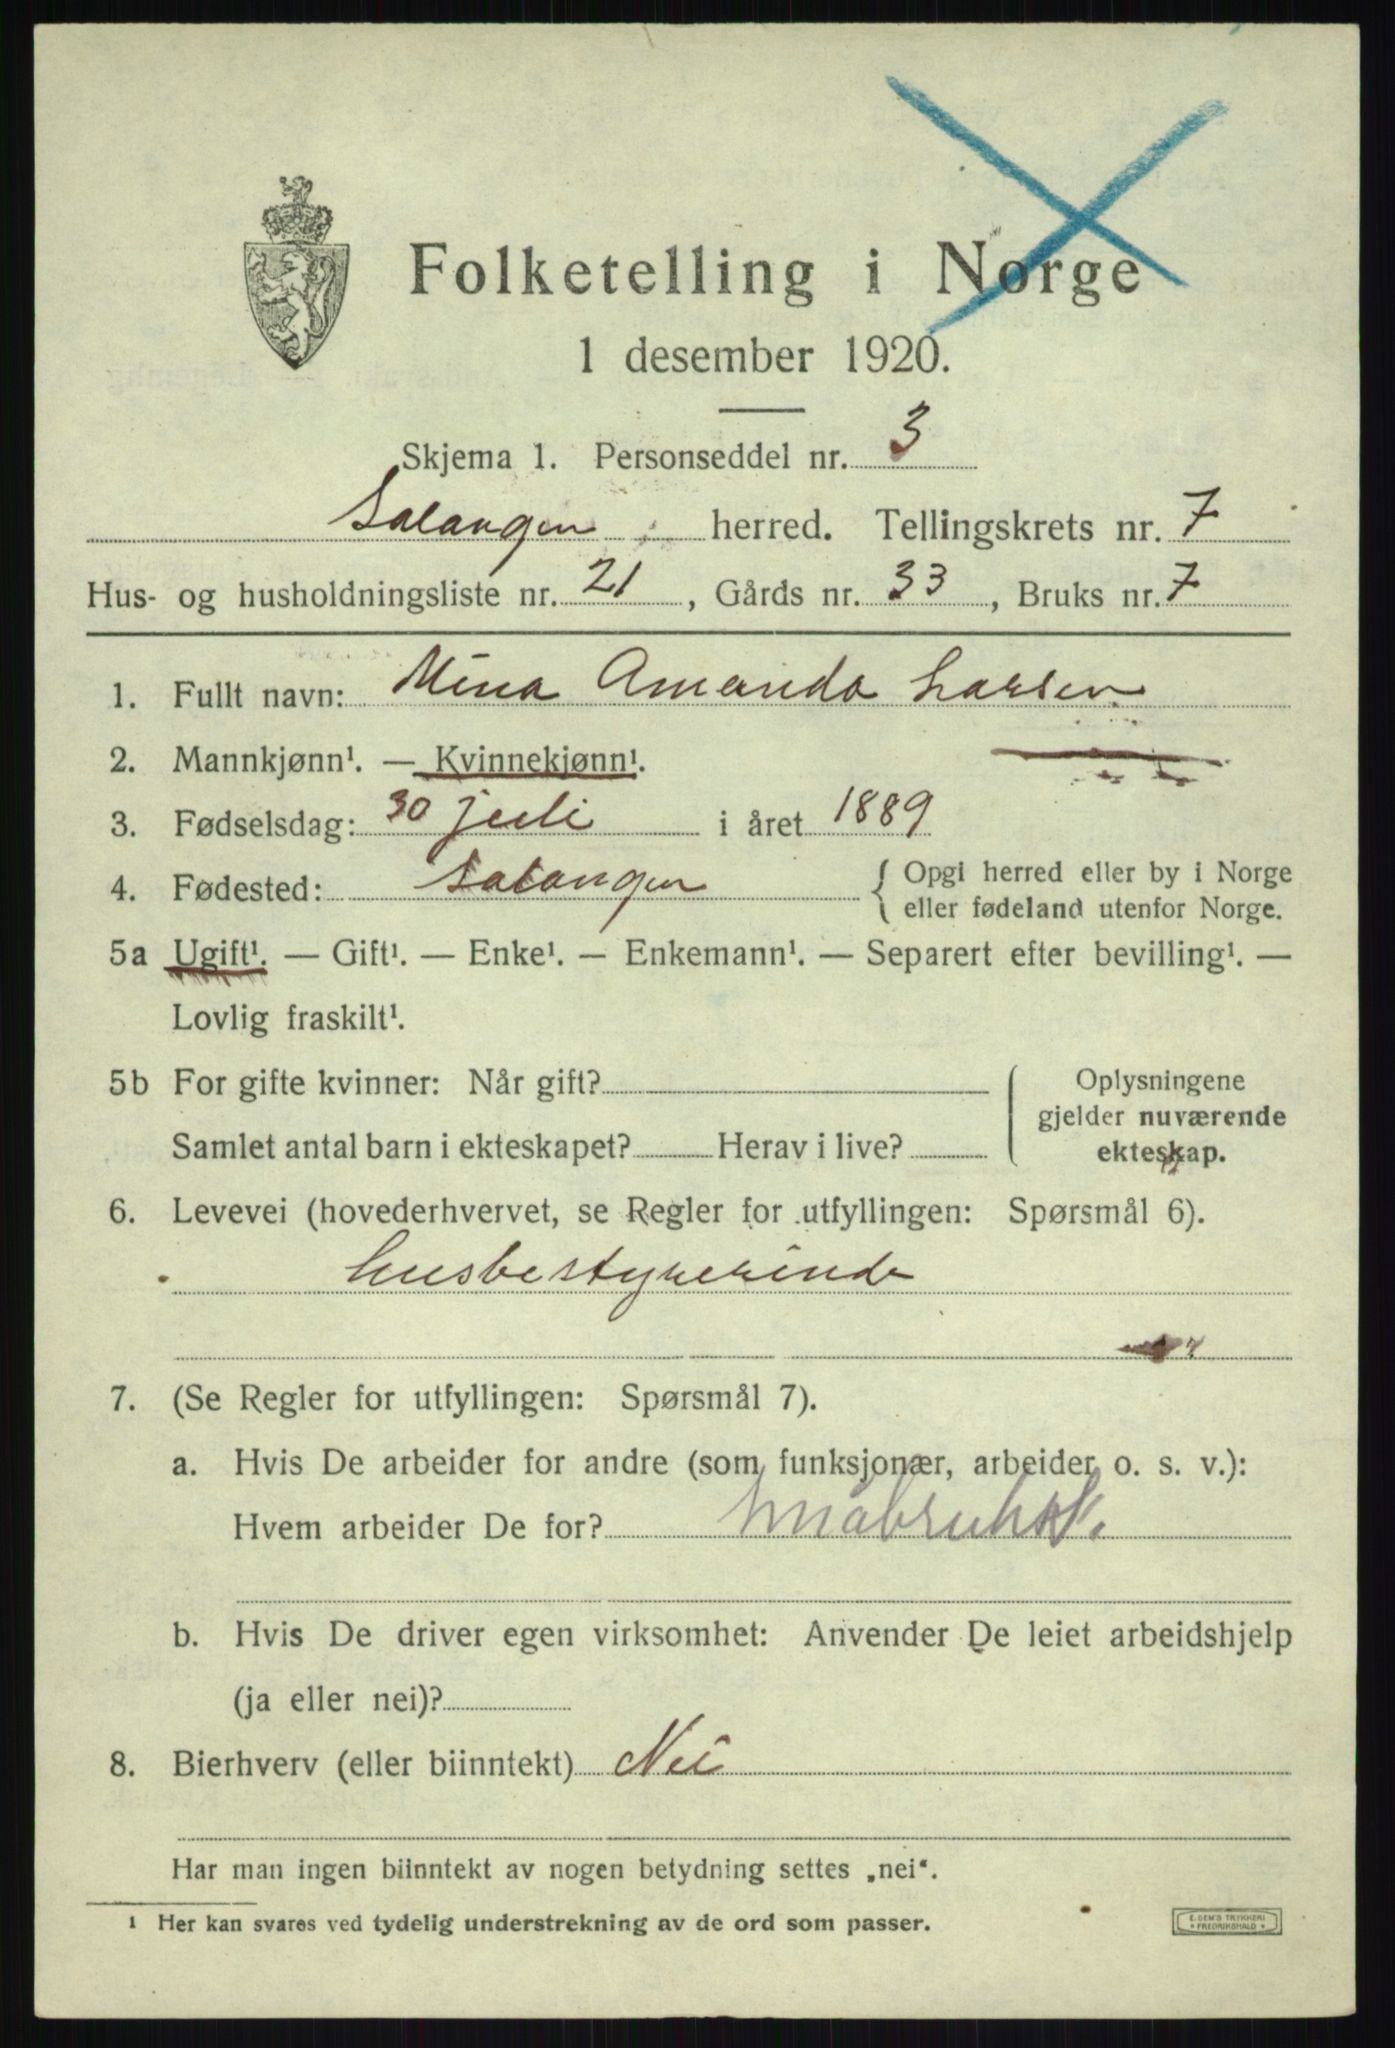 Folketelling i Norge
1 desember 1920.
Skjema 1. Personseddel nr. 3
Salangen herred. Tellingskrets nr. 7
Hus- og husholdningsliste nr. 21, Gårds nr. 33, Bruks nr. 7
1. Fullt navn: Mina Amanda Larsen
2. Mannkjønn¹. — Kvinnekjønn¹.
3. Fødselsdag: 30 juli i året 1889
4. Fødested: Salangen { Opgi herred eller by i Norge
eller fødeland utenfor Norge.
5a Ugift¹. — Gift¹. — Enke¹. — Enkemann¹. — Separert efter bevilling¹. —
Lovlig fraskilt¹.
5b For gifte kvinner: Når gift?
Samlet antal barn i ekteskapet? Herav i live?
Oplysningene
gjelder nuværende
ekteskap.
6. Levevei (hovederhvervet, se Regler for utfyllingen: Spørsmål 6).
husbestyrerinde
7. (Se Regler for utfyllingen: Spørsmål 7).
a. Hvis De arbeider for andre (som funksjonær, arbeider o. s. v.):
Hvem arbeider De for?
b. Hvis De driver egen virksomhet: Anvender De leiet arbeidshjelp
(ja eller nei)?
8. Bierhverv (eller biinntekt) Nei
Har man ingen biinntekt av nogen betydning settes „nei“.
¹ Her kan svares ved tydelig understrekning av de ord som passer.
E. SEM'S TRYKKERI
* FREDRIKSHALD *